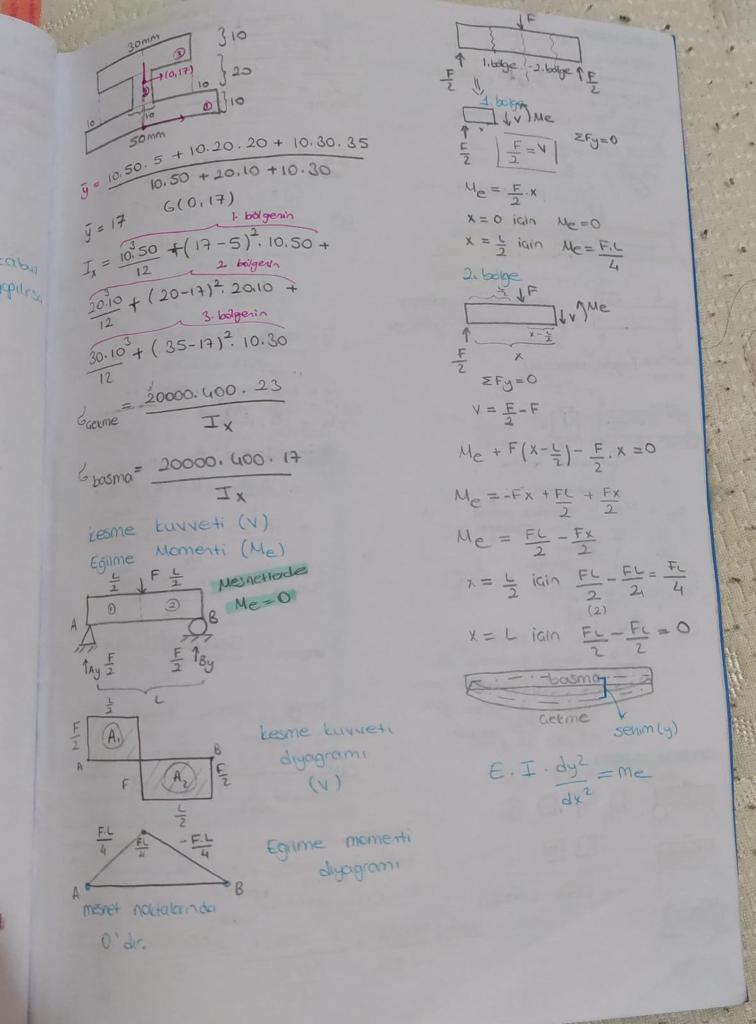 30mm
③
}10
(0,17)
}20
②
10
10
10
}10
①
50mm
ȳ = 10.50.5 + 10.20.20 + 10.30.35 / 10.50 + 20.10 + 10.30
ȳ = 17 G(0,17)
1. bölgenin
Iₓ = 10³.50/12 + (17-5)².10.50 +
2. bölgenin
20³.10/12 + (20-17)².20.10 +
3. bölgenin
30.10³/12 + (35-17)².10.30
σçekme = 20000.400.23 / Iₓ
σbasma = 20000.400.17 / Iₓ
kesme kuvveti (V)
Eğilme Momenti (Me)
L/2 F L/2
Mesnetlerde
Me=0
① ②
A B
Ay F/2 F/2 By
L
L/2
F/2 A₁
A B
F A₂ F/2
L/2
kesme kuvveti
diyagramı
(V)
F.L/4 FL/4 -F.L/4
A B
Eğilme momenti
diyagramı
mesnet noktalarında
0'dır.
F
1.bölge 2.bölge
F/2 F/2
1. bölge
x V Me
F/2 F/2 = V ΣFy=0
Me = F/2 . x
x=0 için Me=0
x = L/2 için Me = F.L/4
2. bölge
L/2 F
V Me
x-L/2
F/2 x
ΣFy=0
V = F/2 - F
Me + F(x-L/2) - F/2 . x = 0
Me = -Fx + FL/2 + Fx/2
Me = FL/2 - Fx/2
x = L/2 için FL/2 - FL/4 = FL/4
(2)
x = L için FL/2 - FL/2 = 0
basma
çekme
sehim(y)
E.I. dy²/dx² = Me